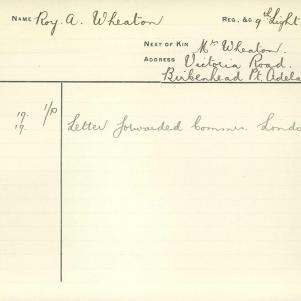 NAME Roy. A. Wheaton REG. &C. 9th Light
NEXT OF KIN Mr Wheaton.
ADDRESS Victoria Road.
Birkenhead Pt. Adela
19. 1/10
19. Letter forwarded Commr. Londo